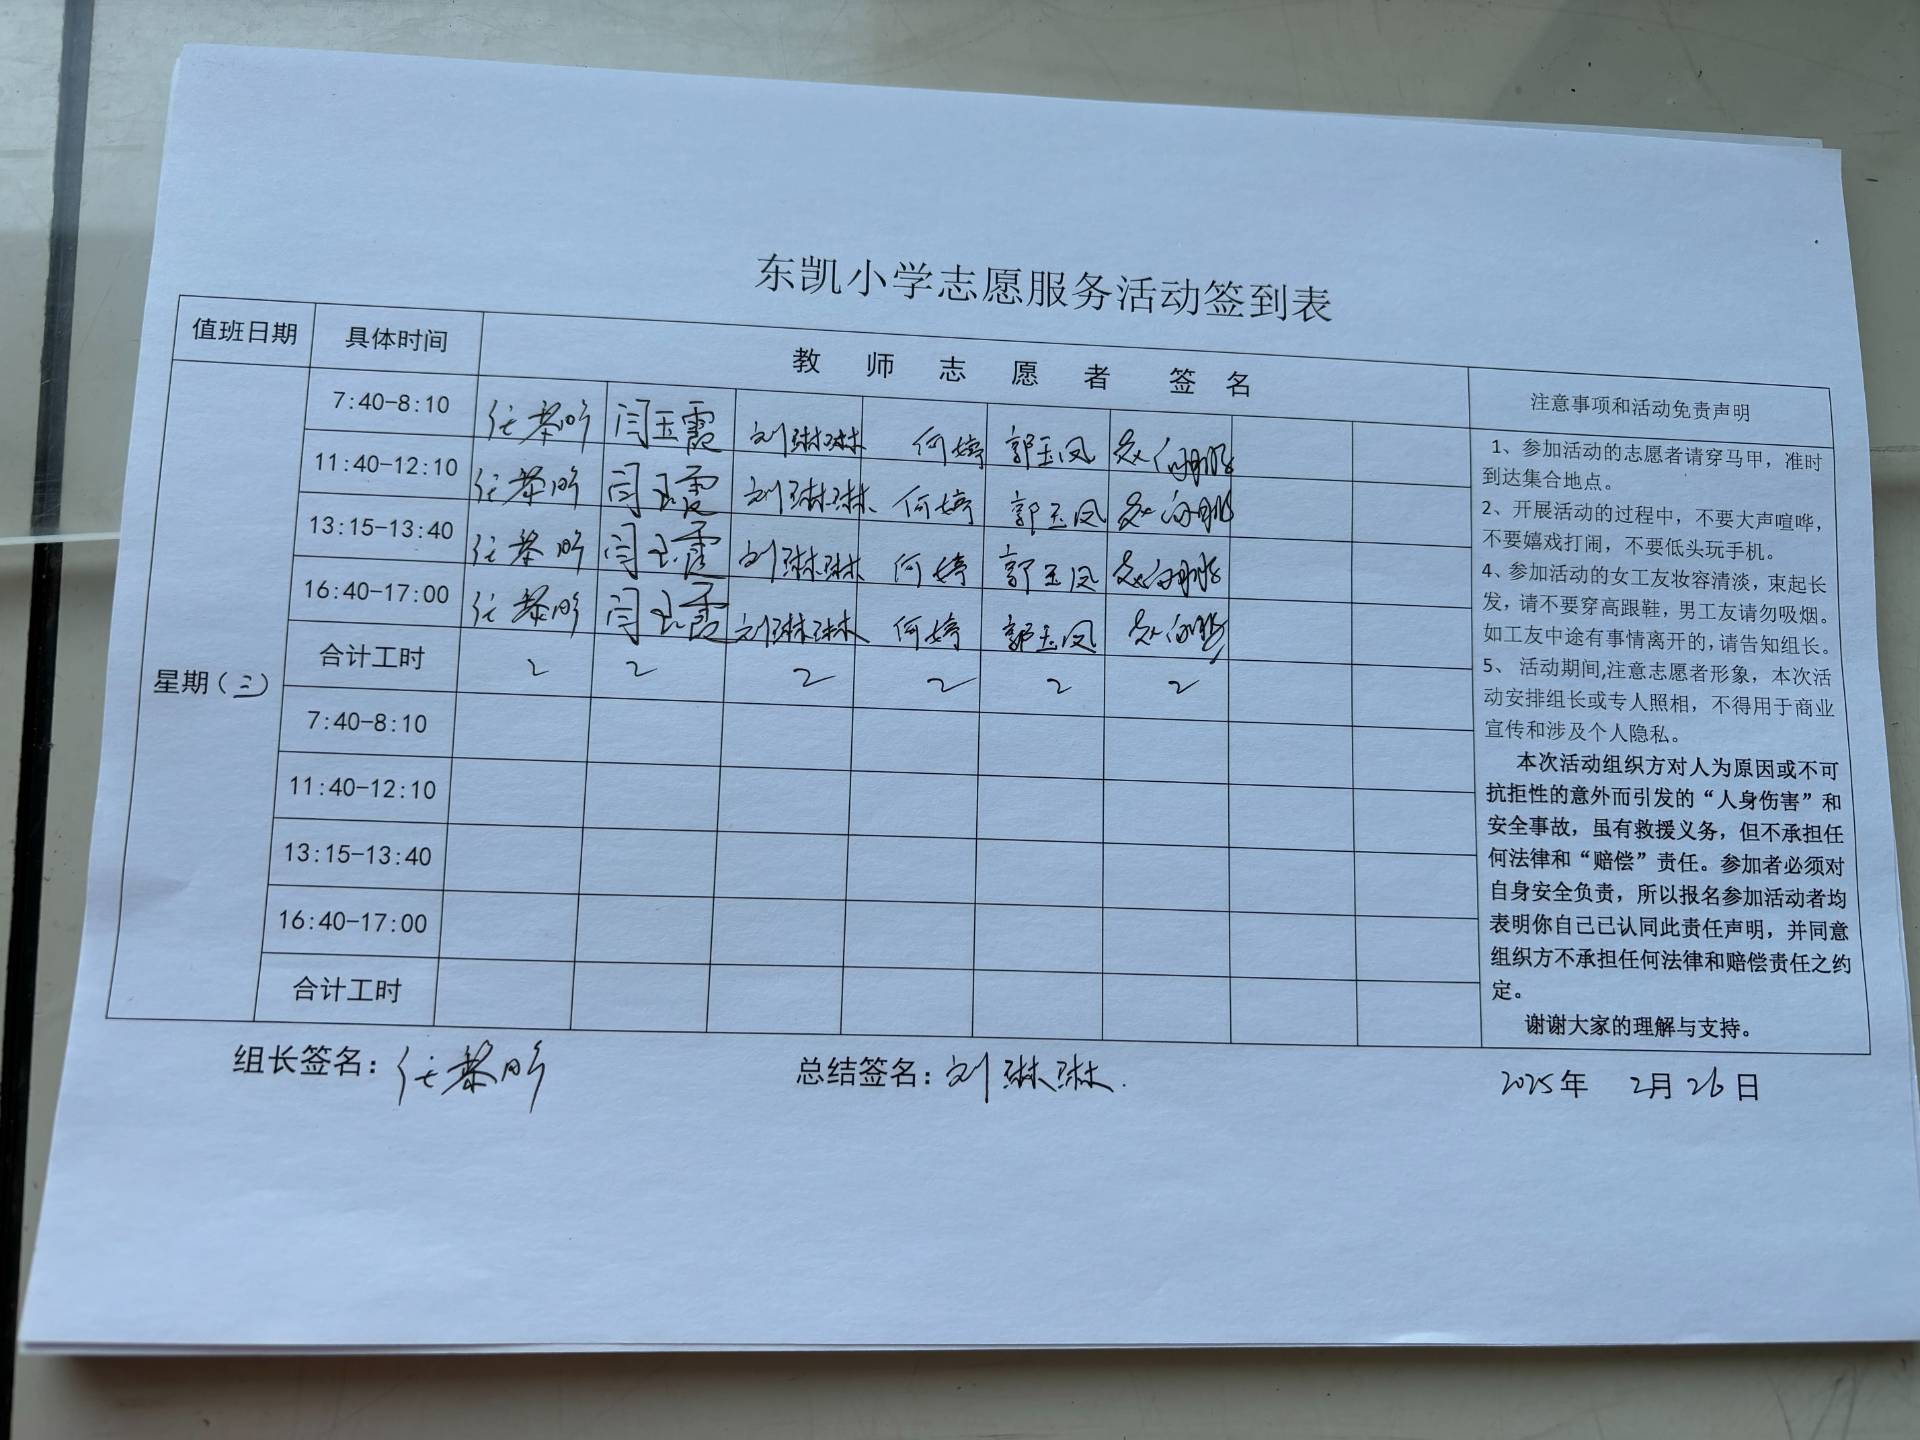 东凯小学志愿服务活动签到表
值班日期 具体时间 教师志愿者签名 注意事项和活动免责声明
星期(三)
7:40-8:10 任黎昕 闫玉霞 刘琳琳 何婷 郭玉凤
11:40-12:10 任黎昕 闫玉霞 刘琳琳 何婷 郭玉凤
13:15-13:40 任黎昕 闫玉霞 刘琳琳 何婷 郭玉凤
16:40-17:00 任黎昕 闫玉霞 刘琳琳 何婷 郭玉凤
合计工时 2 2 2 2 2 2
7:40-8:10
11:40-12:10
13:15-13:40
16:40-17:00
合计工时
1、参加活动的志愿者请穿马甲，准时
到达集合地点。
2、开展活动的过程中，不要大声喧哗，
不要嬉戏打闹，不要低头玩手机。
4、参加活动的女工友妆容清淡，束起长
发，请不要穿高跟鞋，男工友请勿吸烟。
如工友中途有事情离开的,请告知组长。
5、 活动期间,注意志愿者形象，本次活
动安排组长或专人照相，不得用于商业
宣传和涉及个人隐私。
本次活动组织方对人为原因或不可
抗拒性的意外而引发的“人身伤害”和
安全事故，虽有救援义务，但不承担任
何法律和“赔偿”责任。参加者必须对
自身安全负责，所以报名参加活动者均
表明你自己已认同此责任声明，并同意
组织方不承担任何法律和赔偿责任之约
定。
谢谢大家的理解与支持。
组长签名：任黎昕 总结签名：刘琳琳. 2025年 2月26日